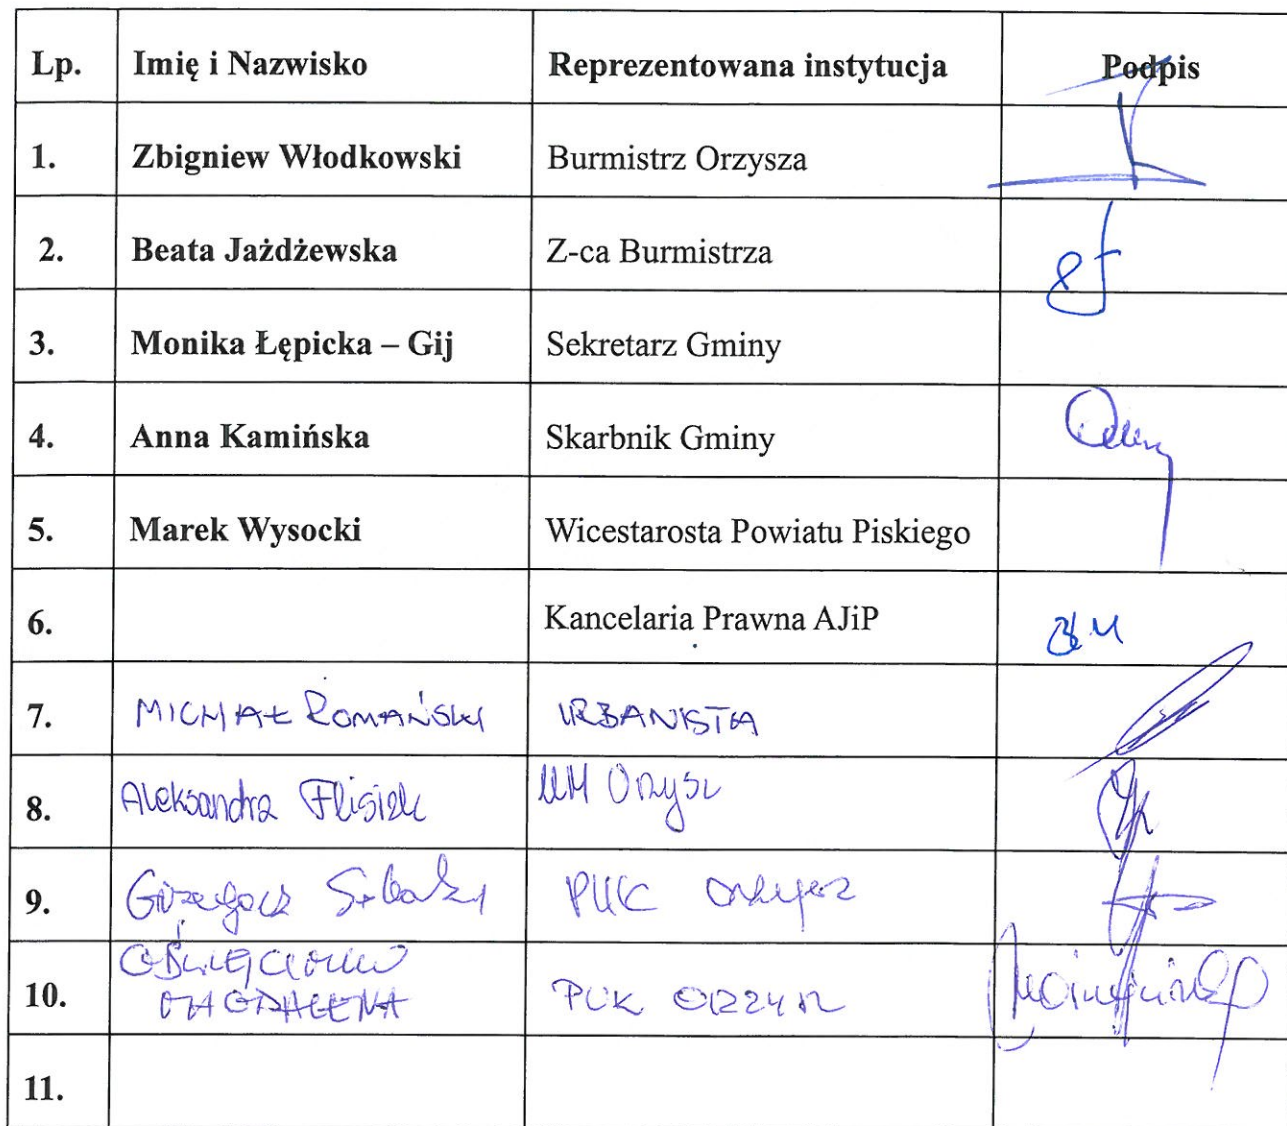 Lp. Imię i Nazwisko Reprezentowana instytucja Podpis
1. Zbigniew Włodkowski Burmistrz Orzysza
2. Beata Jażdżewska Z-ca Burmistrza
3. Monika Łępicka – Gij Sekretarz Gminy
4. Anna Kamińska Skarbnik Gminy
5. Marek Wysocki Wicestarosta Powiatu Piskiego
6. Kancelaria Prawna AJiP
7. MICHAŁ ROMAŃSKI URBANISTA
8. Aleksandra Flisiek UM Orzysz
9. Grzegorz PUK Orzysz
10. MAGDALENA PUK ORZYSZ
11.